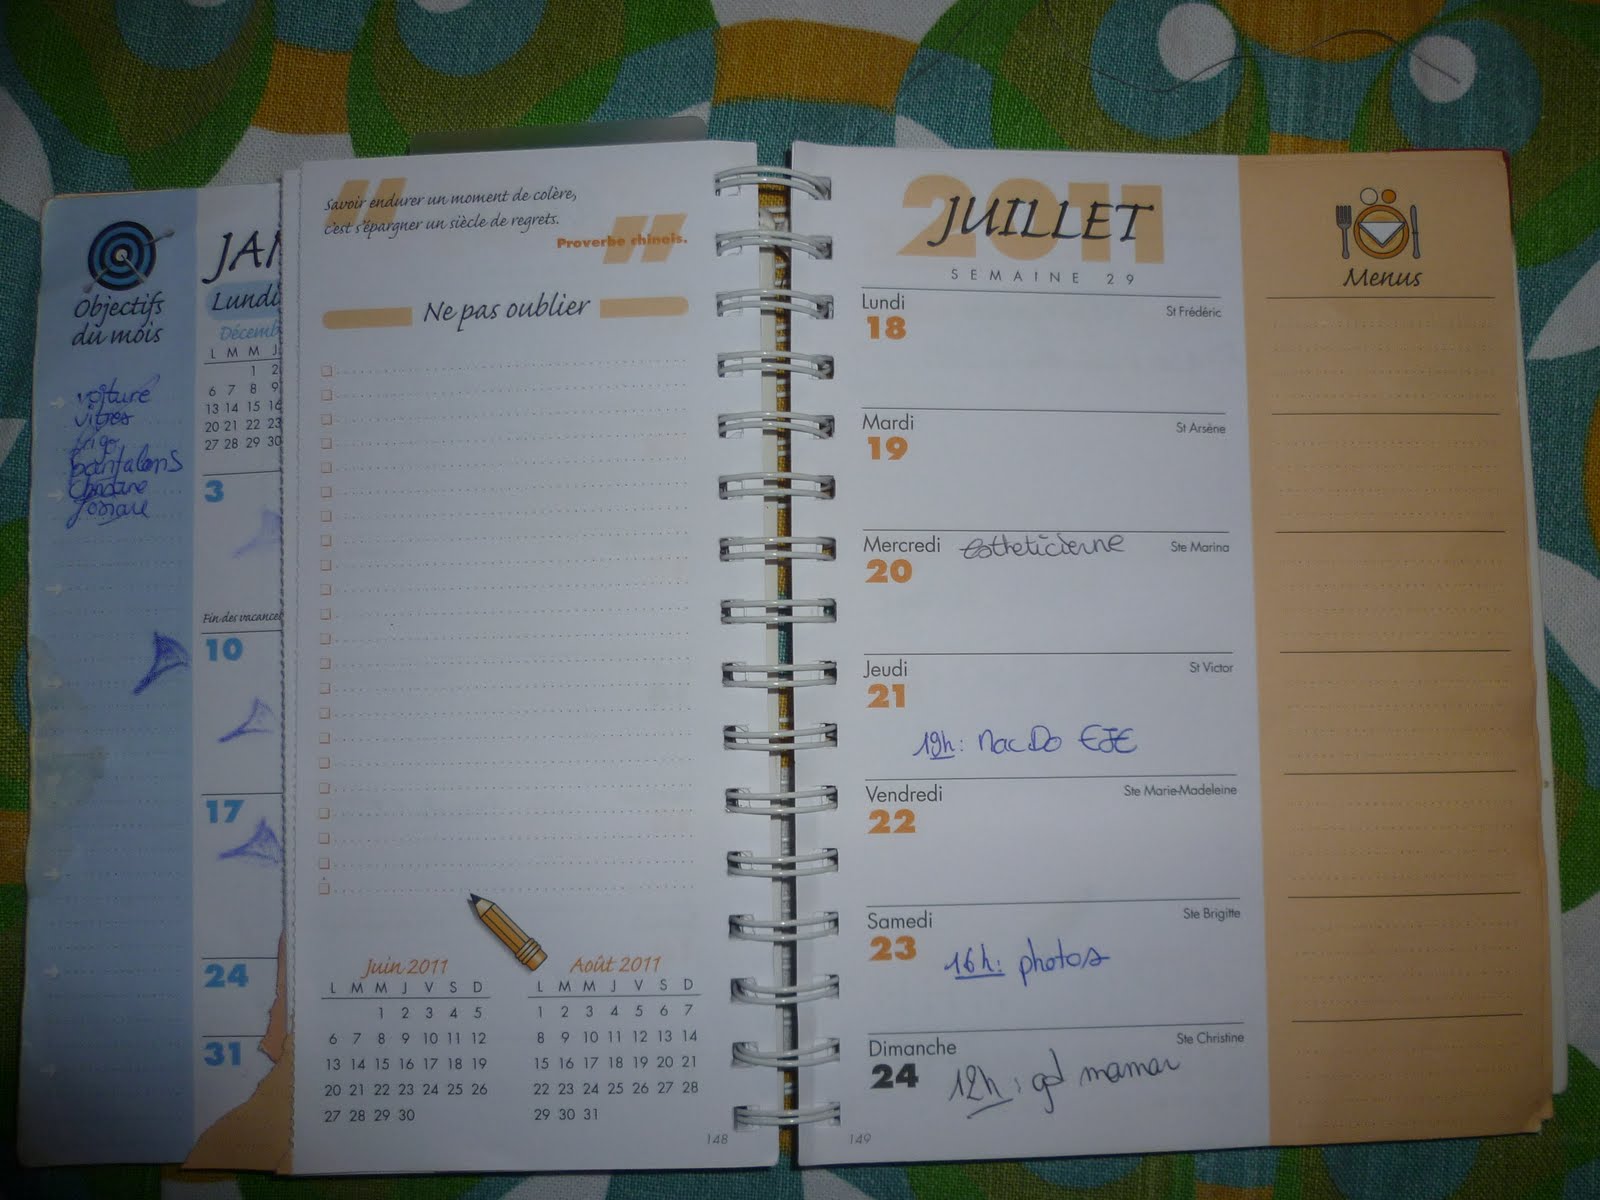 Objectifs
du mois
voiture
vitres
frigo
pantalons
JAN
Lundi
Décemb
L M M J
1 2
6 7 8 9
13 14 15 16
20 21 22 23
27 28 29 30
3
Fin des vacances
10
17
24
31
Savoir endurer un moment de colère,
c'est s'épargner un siècle de regrets.
Proverbe chinois.
Ne pas oublier
Juin 2011
L M M J V S D
1 2 3 4 5
6 7 8 9 10 11 12
13 14 15 16 17 18 19
20 21 22 23 24 25 26
27 28 29 30
Août 2011
L M M J V S D
1 2 3 4 5 6 7
8 9 10 11 12 13 14
15 16 17 18 19 20 21
22 23 24 25 26 27 28
29 30 31
148
2011
JUILLET
SEMAINE 29
Lundi
18
St Frédéric
Mardi
19
St Arsène
Mercredi estheticienne
20
Ste Marina
Jeudi
21
St Victor
19h: MacDo EJE
Vendredi
22
Ste Marie-Madeleine
Samedi
23
Ste Brigitte
16h: photos
Dimanche
24
Ste Christine
12h: gd maman
149
Menus